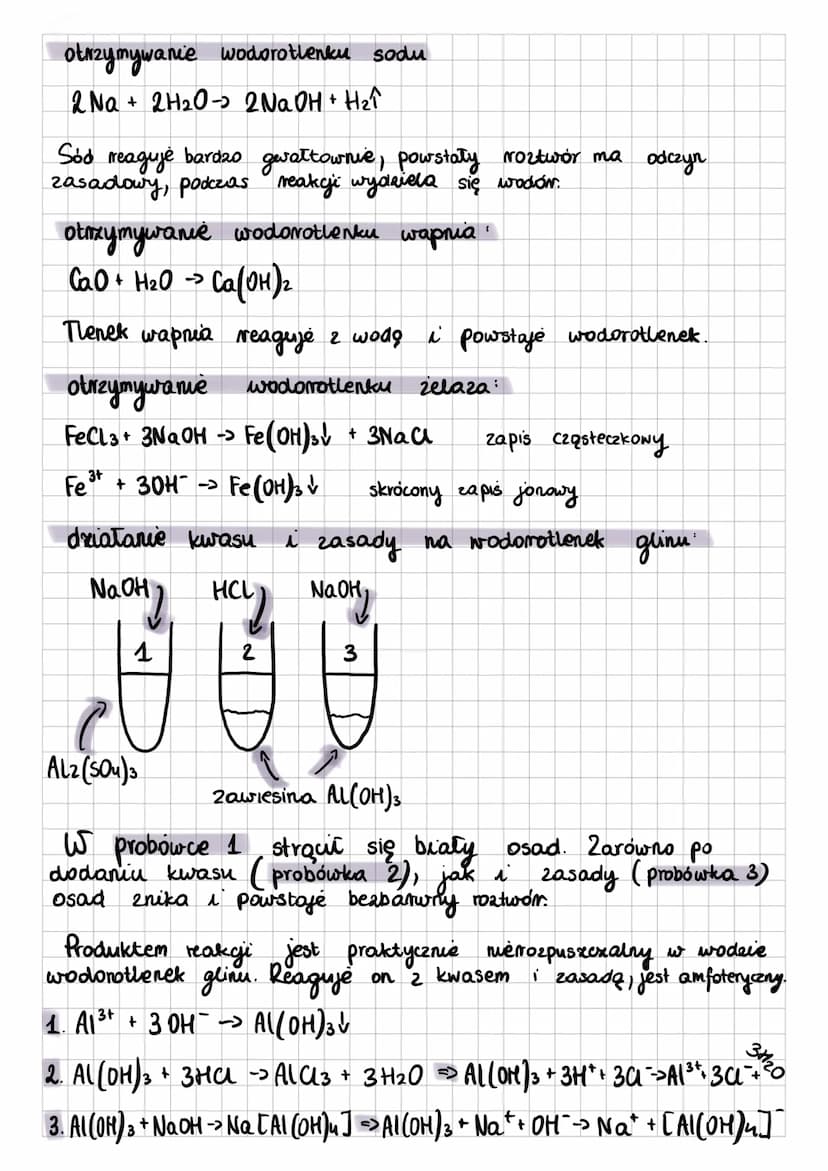 otrzymywanie wodorotlenku sodu
2Na + 2H2O -> 2NaOH + H2↑
Sód reaguje bardzo gwałtownie, powstały roztwór ma odczyn
zasadowy, podczas reakcji wydziela się wodór.
otrzymywanie wodorotlenku wapnia:
CaO + H2O -> Ca(OH)2
Tlenek wapnia reaguje z wodą i powstaje wodorotlenek.
otrzymywanie wodorotlenku żelaza:
FeCl3 + 3NaOH -> Fe(OH)3↓ + 3NaCl zapis cząsteczkowy
Fe³⁺ + 3OH⁻ -> Fe(OH)3↓ skrócony zapis jonowy
działanie kwasu i zasady na wodorotlenek glinu:
NaOH HCL NaOH
1 2 3
AL2(SO4)3
zawiesina Al(OH)3
W probówce 1 strącił się biały osad. Zarówno po
dodaniu kwasu (probówka 2), jak i zasady (probówka 3)
osad znika i powstaje bezbarwny roztwór.
Produktem reakcji jest praktycznie nierozpuszczalny w wodzie
wodorotlenek glinu. Reaguje on z kwasem i zasadą, jest amfoteryczny.
1. Al³⁺ + 3OH⁻ -> Al(OH)3↓
2. Al(OH)3 + 3HCl -> AlCl3 + 3H2O => Al(OH)3 + 3H⁺ + 3Cl⁻ -> Al³⁺ + 3Cl⁻ + 3H2O
3. Al(OH)3 + NaOH -> Na[Al(OH)4] => Al(OH)3 + Na⁺ + OH⁻ -> Na⁺ + [Al(OH)4]⁻